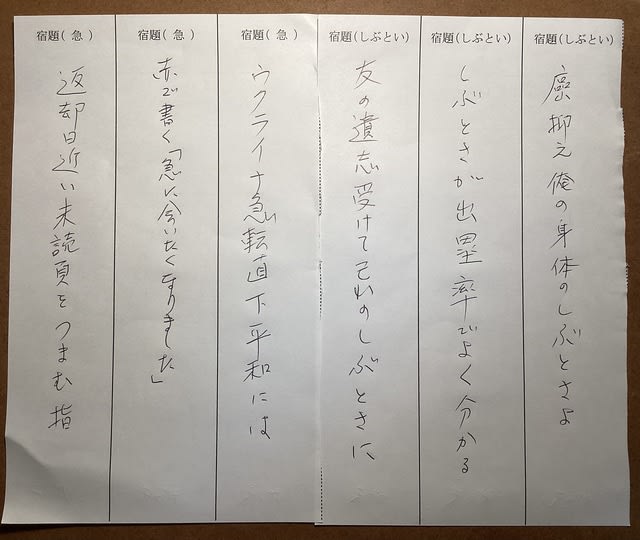 宿題(しぶとい)
癌抑え俺の身体のしぶとさよ
宿題(しぶとい)
しぶとさが出塁率でよく分かる
宿題(しぶとい)
友の遺志受けて己れのしぶときに
宿題(急)
ウクライナ急転直下平和には
宿題(急)
赤で書く「急に会いたくなりました」
宿題(急)
返却日近い未読頁をつまむ指